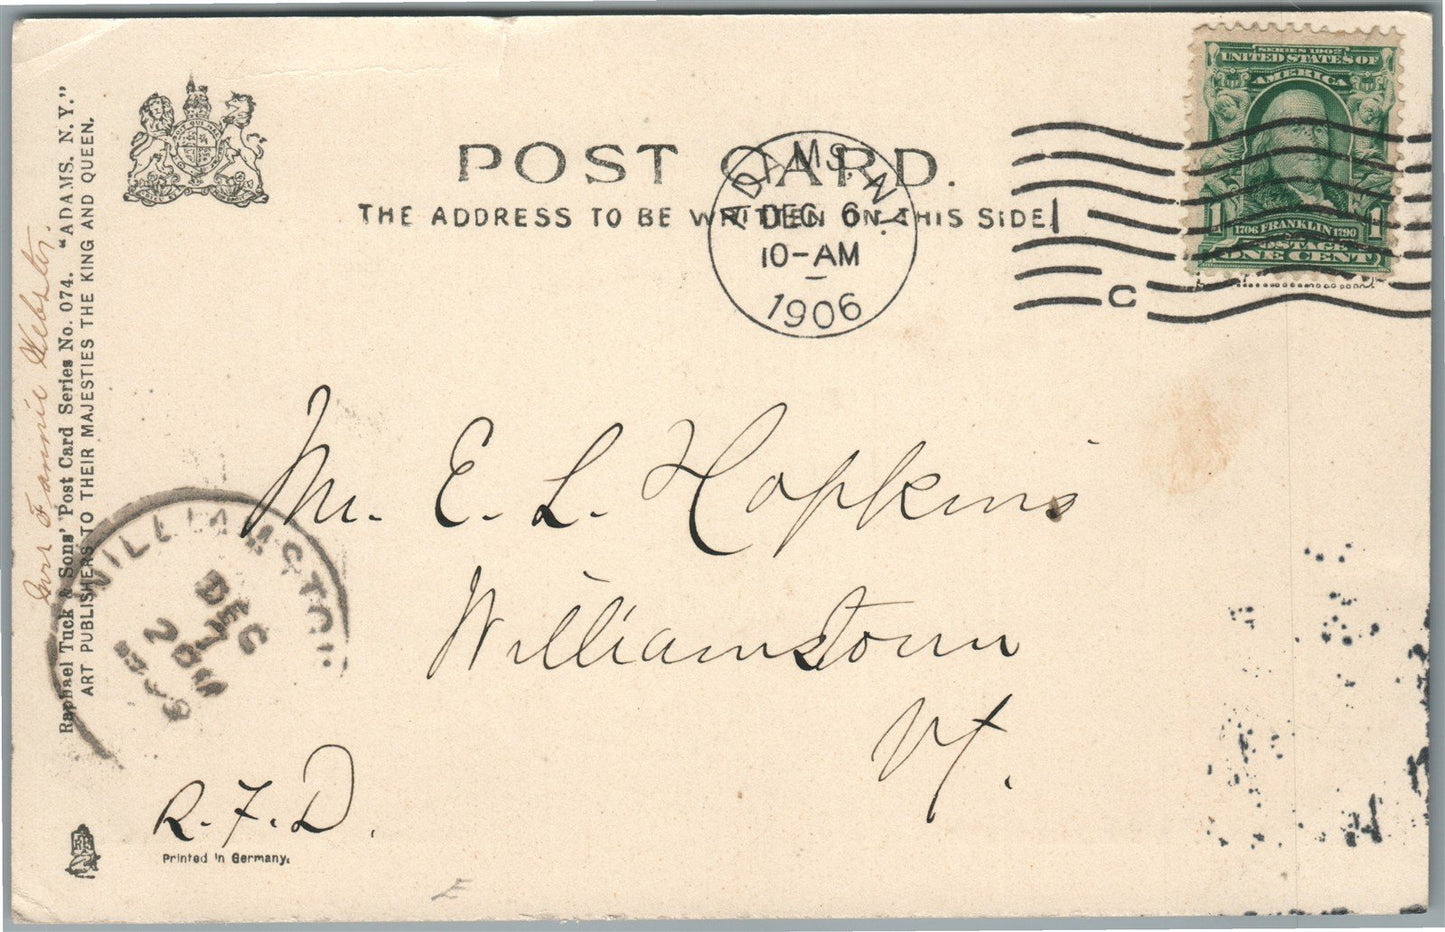 POST CARD.
THE ADDRESS TO BE WRITTEN ON THIS SIDE.
SERIES 1902
UNITED STATES OF
AMERICA
1 1
1706 FRANKLIN 1790
POSTAGE
ONE CENT
ADAMS. N.Y.
DEC 6
10-AM
1906
1
C
Fannie Webster.
Raphael Tuck & Sons' Post Card Series No. 074. "ADAMS. N. Y."
ART PUBLISHERS TO THEIR MAJESTIES THE KING AND QUEEN.
Mr. E. L. Hopkins
Williamstown
Vt.
WILLIAMSTOW
DEC
7
R.F.D.
Printed in Germany.
E